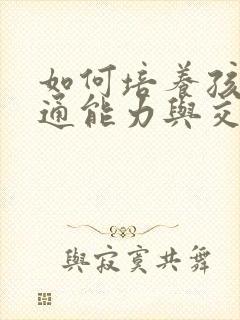 如何培養孩
通能力與交
與寂寞共舞